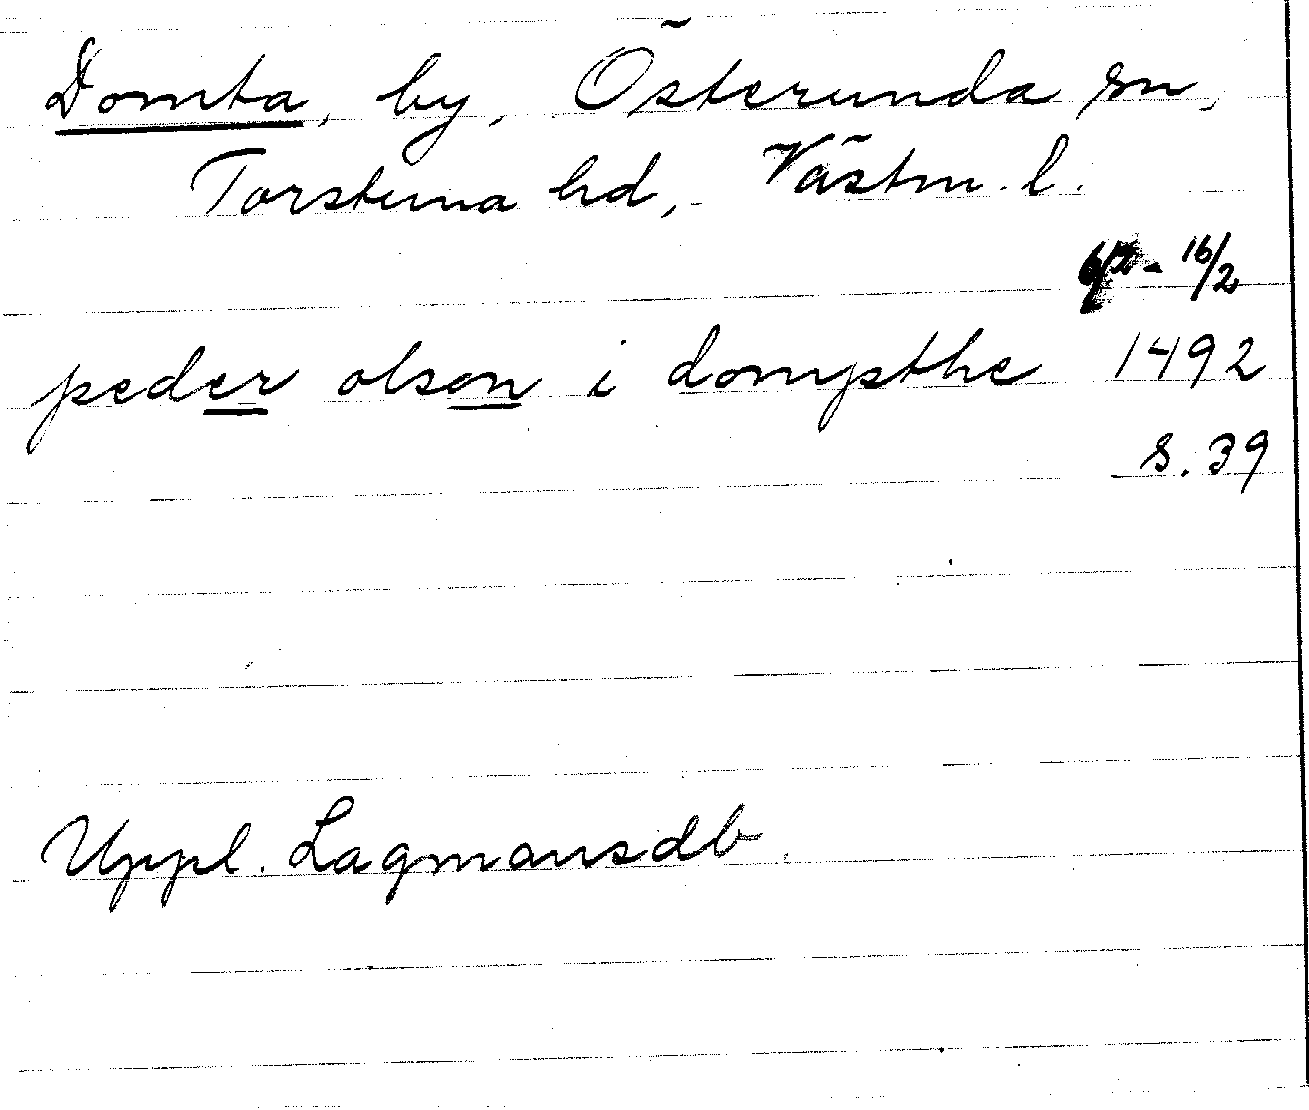 Domta, by, Österunda sn,
Torstuna hd, Västm. l.
- 16/2
peder olson i dompsthe 1492
s. 39
Uppl. Lagmansdb.